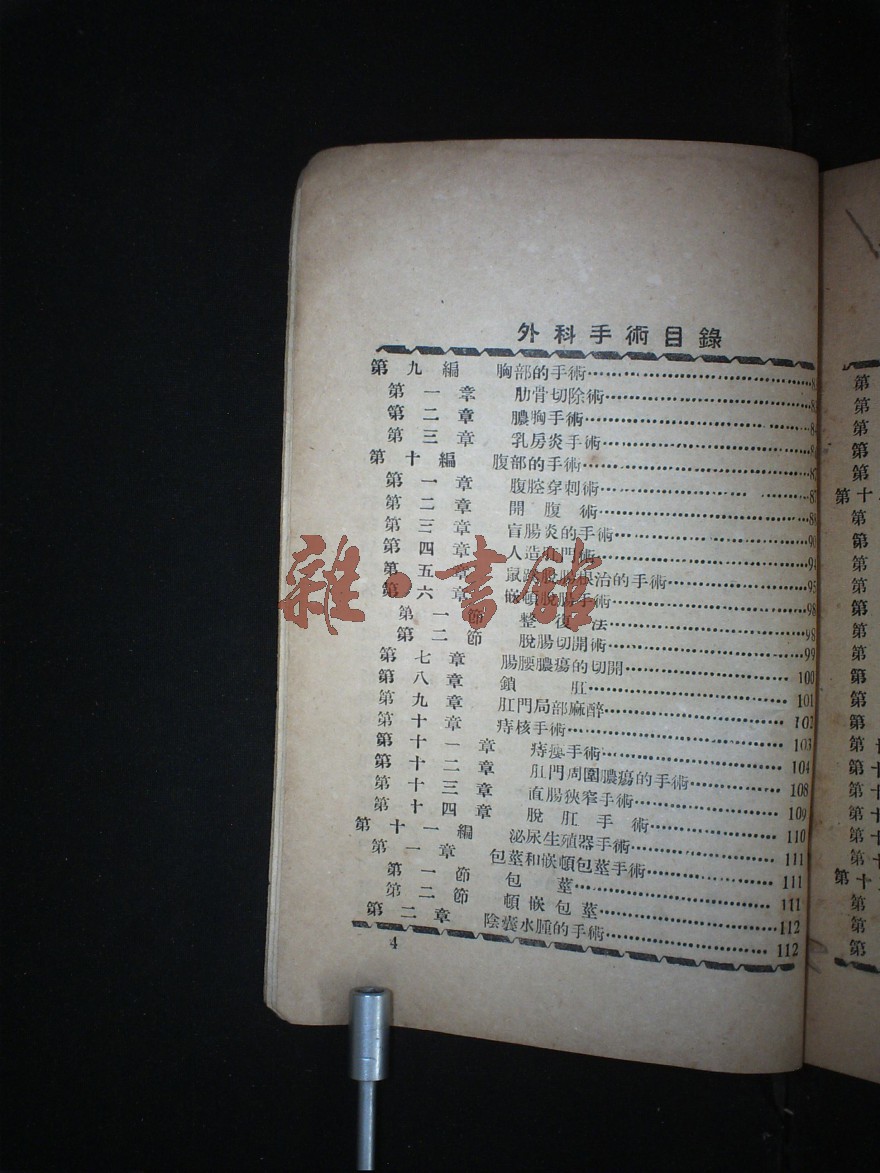 外科手術目錄
第九編 胸部的手術
第一章 肋骨切除術
第二章 膿胸手術
第三章 乳房炎手術
第十編 腹部的手術 87
第一章 腹腔穿刺術 87
第二章 開腹術 88
第三章 盲腸炎的手術 90
第四章 人造肛門術 94
第五章 鼠蹊脫腸根治的手術 95
第六章 嵌頓脫腸手術 98
第一節 整復法 98
第二節 脫腸切開術 99
第七章 腸腰膿瘍的切開 100
第八章 鎖肛 101
第九章 肛門局部麻醉 102
第十章 痔核手術 103
第十一章 痔瘻手術 104
第十二章 肛門周圍膿瘍的手術 108
第十三章 直腸狹窄手術 109
第十四章 脫肛手術 110
第十一編 泌尿生殖器手術 111
第一章 包莖和嵌頓包莖手術 111
第一節 包莖 111
第二節 頓嵌包莖 112
第二章 陰囊水腫的手術 112
4
雜·書館